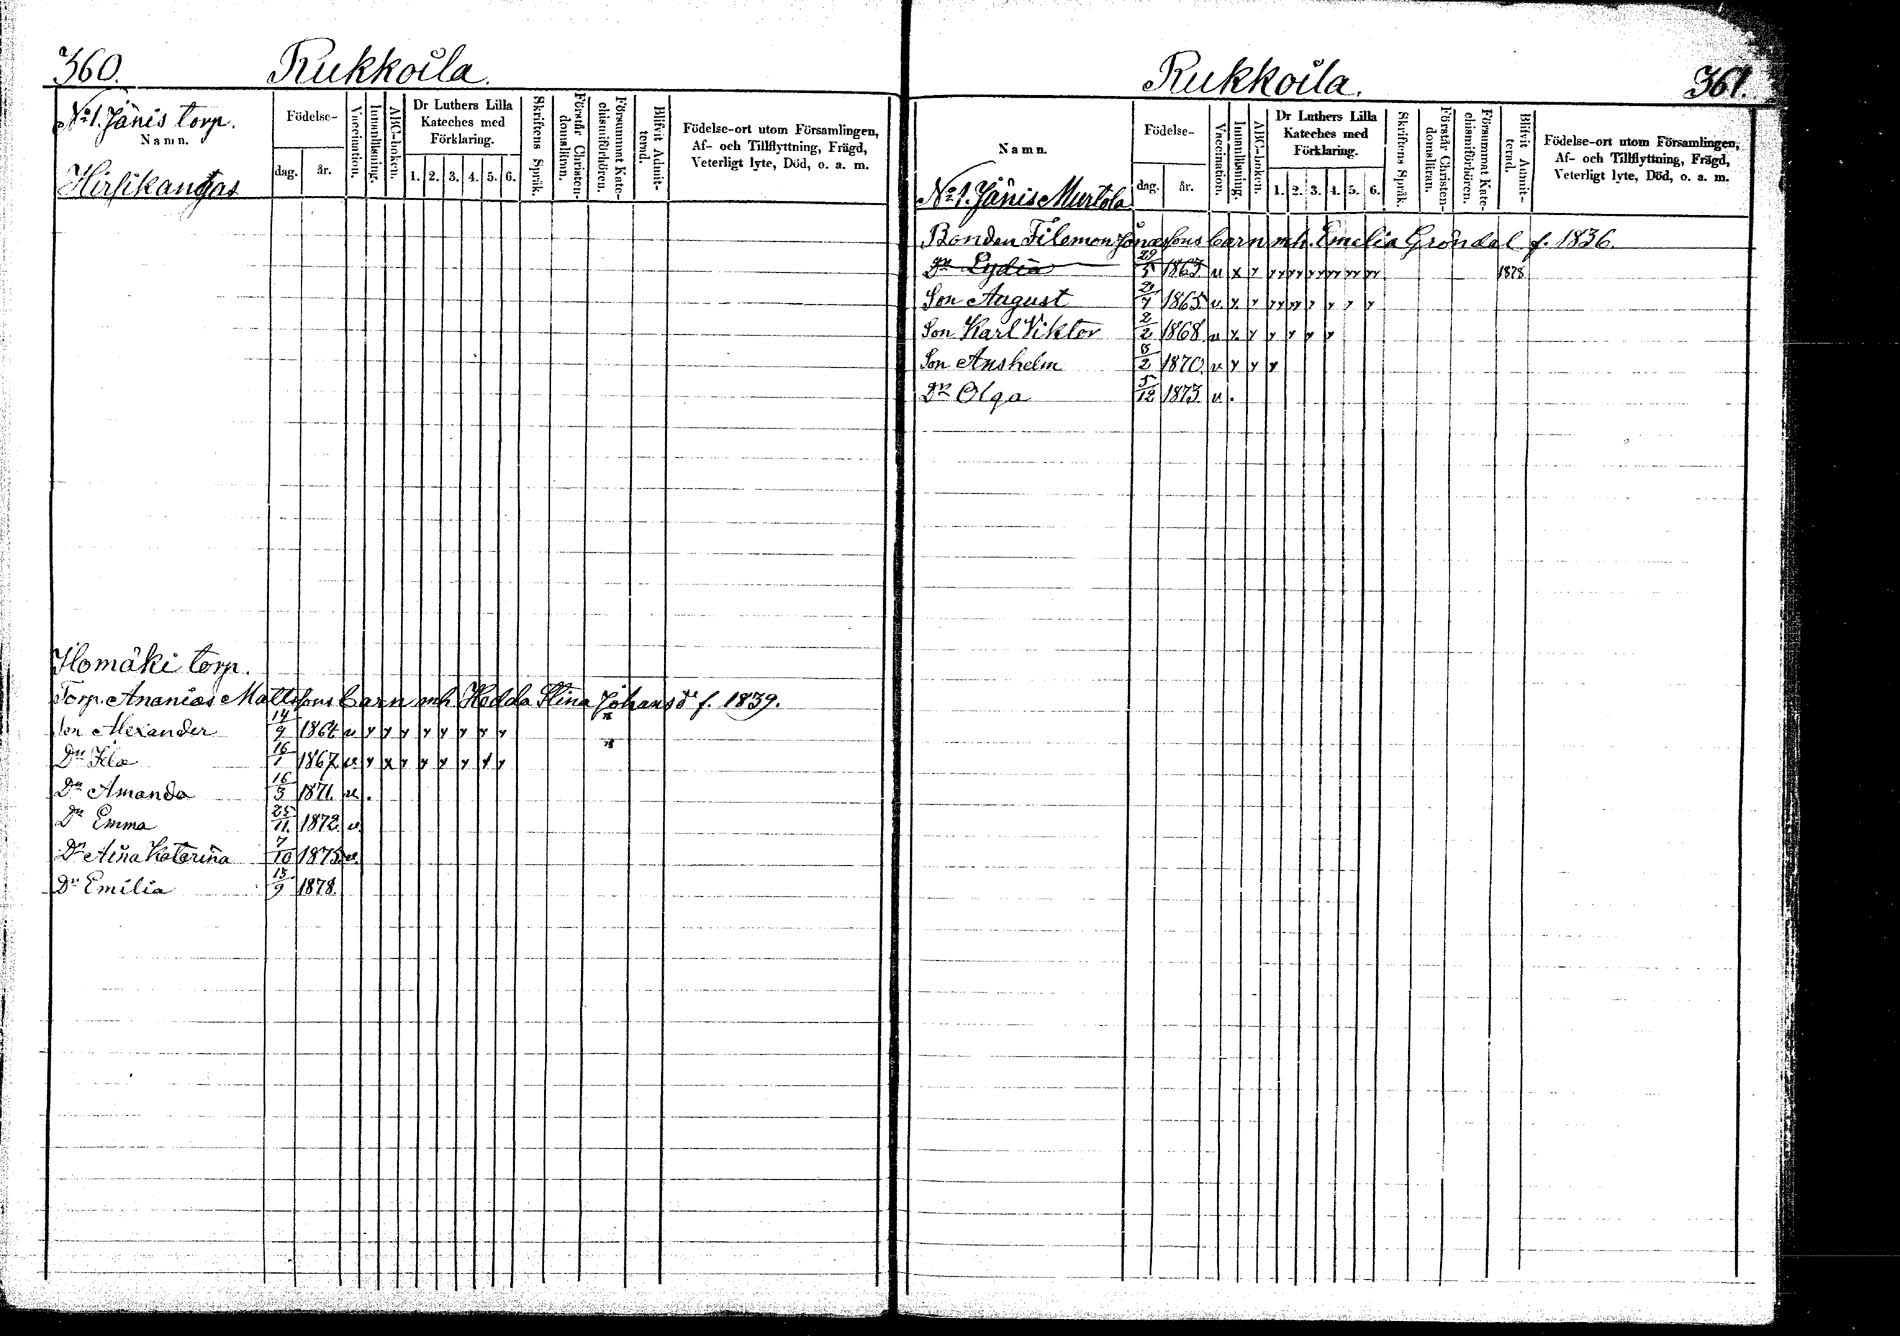 360. Rukkoila.
No 1. Jänis torp.
Namn.
Födelse-
dag. år.
Vaccination.
Innanläsning.
ABC-boken.
Dr Luthers Lilla Kateches med Förklaring.
1. 2. 3. 4. 5. 6.
Skriftens Språk.
Förstår Christendomsläran.
Försummat Katechismiförhören.
Blifvit Admitterad.
Födelse-ort utom Församlingen,
Af- och Tillflyttning, Frägd,
Veterligt lyte, Död, o. a. m.
Hirsikangas
Ilomäki torp.
Torp. Ananias Mattssons barn mh Hedda Stina Johansdr f. 1839.
Son Alexander 14/9 1864 v y y y y y y y y
Dr Ida 16/1 1867 v. y x y y y y y y
Dr Amanda 16/3 1871. v. .
Dr Emma 25/11. 1872. v.
Dr Aina Katarina 7/10 1875. v.
Dr Emilia 13/9 1878.
Rukkoila. 361.
Namn.
Födelse-
dag. år.
Vaccination.
Innanläsning.
ABC-boken.
Dr Luthers Lilla Kateches med Förklaring.
1. 2. 3. 4. 5. 6.
Skriftens Språk.
Förstår Christendomsläran.
Försummat Katechismiförhören.
Blifvit Admitterad.
Födelse-ort utom Församlingen,
Af- och Tillflyttning, Frägd,
Veterligt lyte, Död, o. a. m.
No 1. Jänis Murtola
Bonden Filemon Jonassons barn mh. Emelia Gröndal f. 1836.
Dr Lydia 29/5 1863 v x y yy yy yy yy yy yy 1878
Son August 1865 v. y y yy yy y y y y
Son Karl Viktor 2/2 1868 v y. y y y y y
Son Anshelm 1870. v y y y
Dr Olga 5/12 1873. v. .